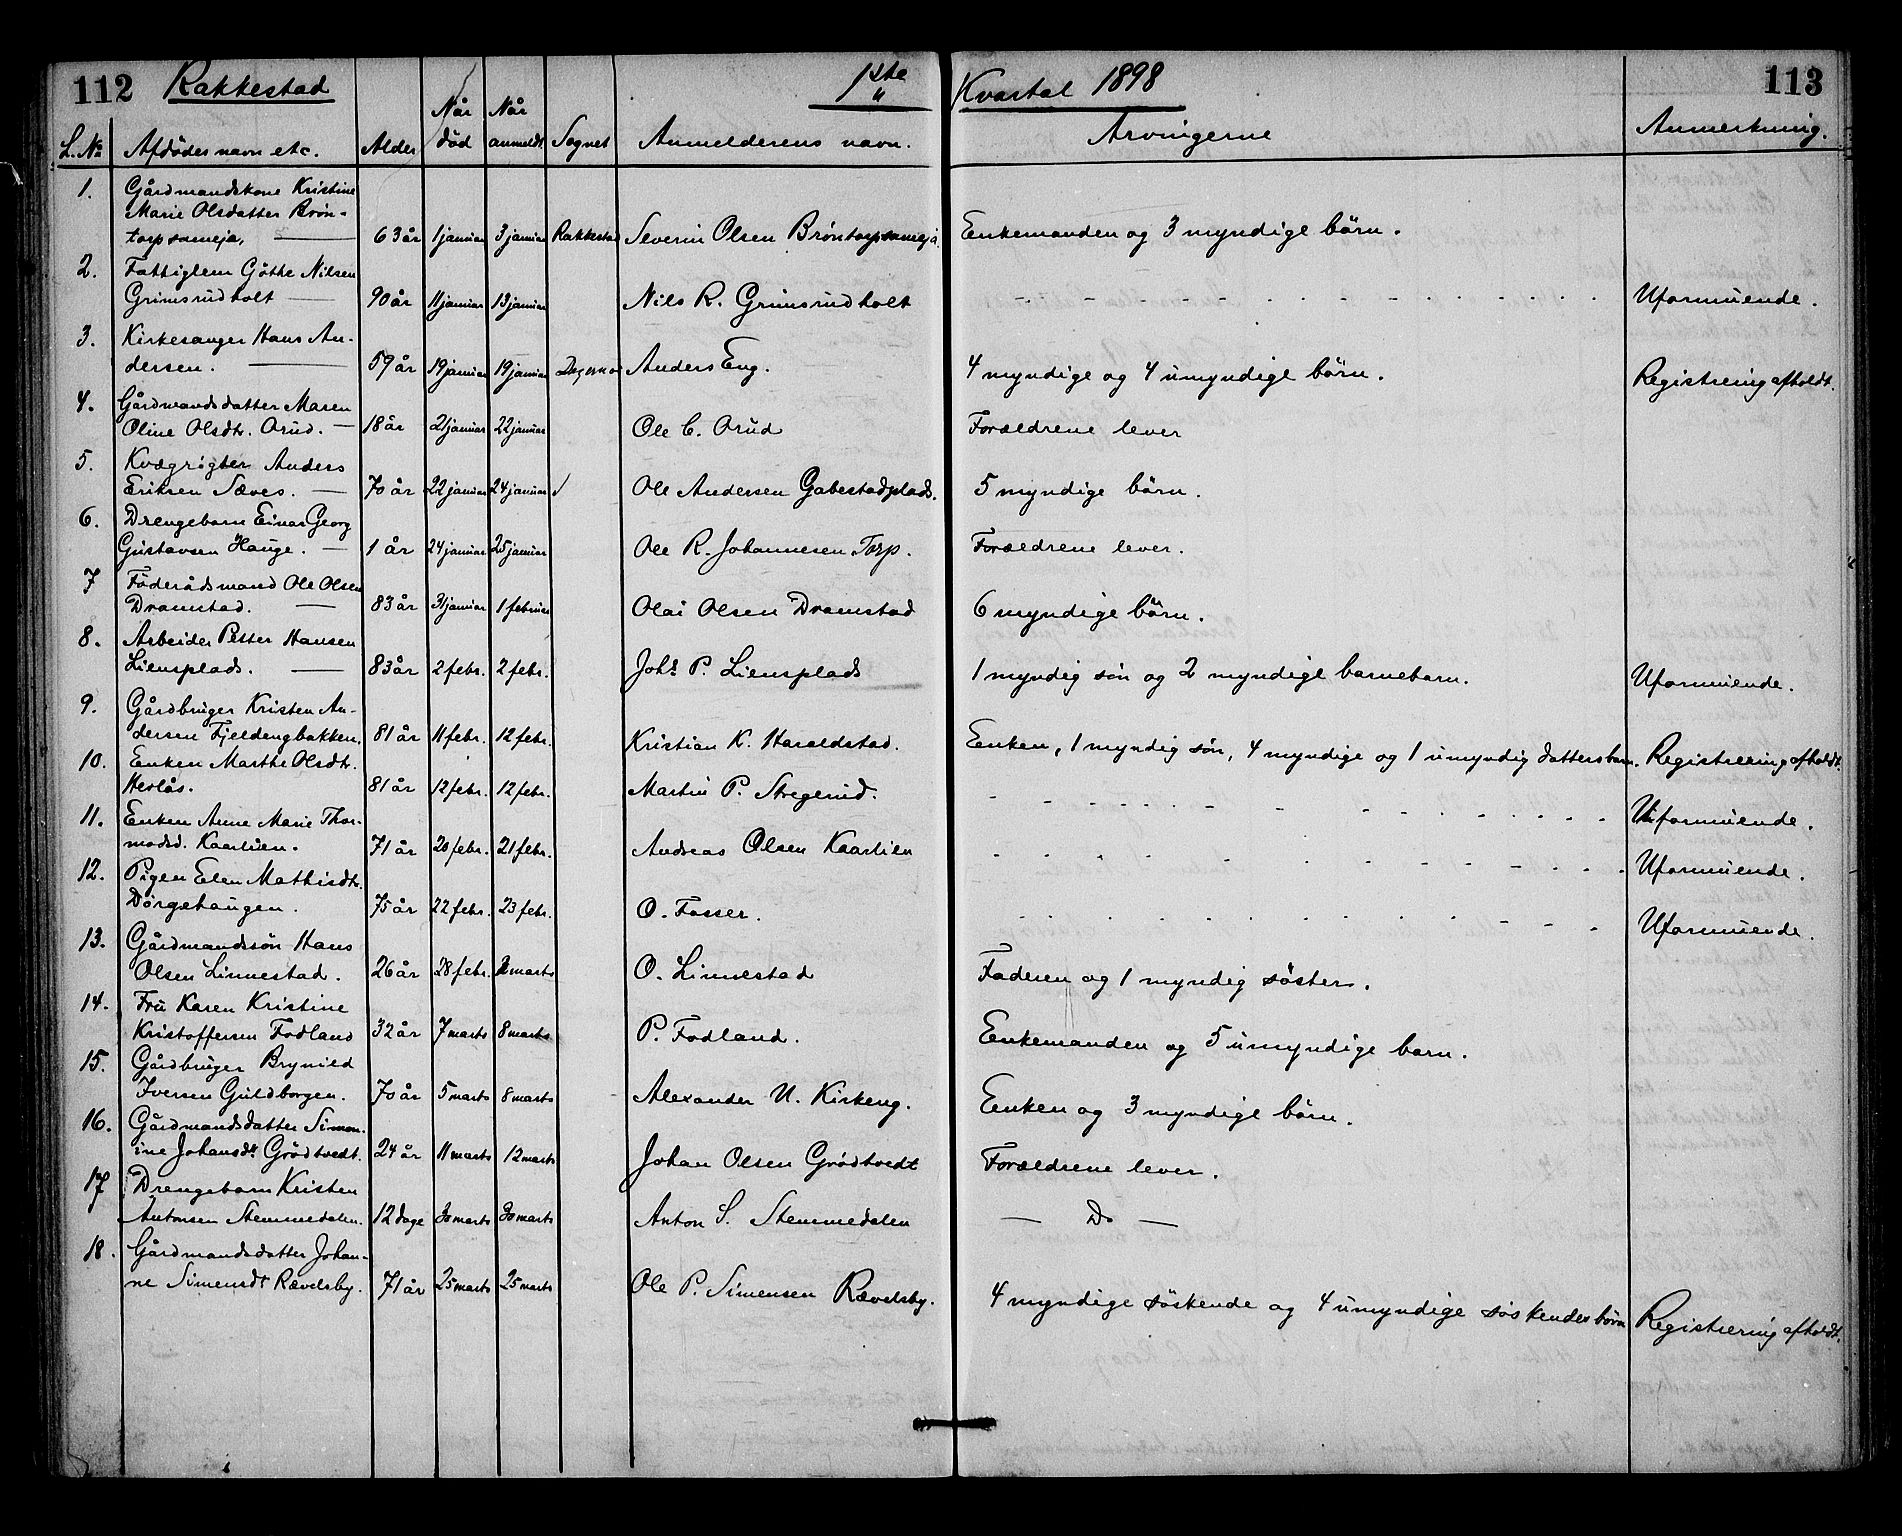 112 Rakkestad 1ste Kvartal 1898 113
L. No Afdödes navn etc. Alder Når död Når anmeldt Sognet Anmelderens navn. Arvingerne Anmerkning.
1. Gårdmandskone Kristine
Marie Olsdatter Brön-
torpsameja, — 63 år 1 januar 3 januar Rakkestad Severin Olsen Bröntorpsameja Enkemanden og 3 myndige börn.
2. Fattiglem Göthe Nilsen
Grimsrudholt — 90 år 11 januar 13 januar Nils R. Grimsrudholt - - - - - - - - - - - - Uformuende.
3. Kirkesanger Hans An-
dersen. — 59 år 19 januar 19 januar Degernes Anders Eng. 4 myndige og 4 umyndige börn. Registrering afholdt.
4. Gårdmandsdatter Maren
Oline Olsdtr. Örud. — 18 år 21 januar 22 januar Ole C. Örud Forældrene lever
5. Kvægrögter Anders
Eriksen Næves. — 70 år 22 januar 24 januar Ole Andersen Gabestadplads. 5 myndige börn.
6. Drengebarn Einar Georg
Gustavsen Hauge. — 1 år 24 januar 25 januar Ole R. Johannesen Torp. Forældrene lever.
7 Föderådsmand Ole Olsen
Dramstad. — 83 år 31 januar 1 februar Olai Olsen Dramstad 6 myndige börn.
8. Arbeider Petter Hansen
Liensplads. — 83 år 2 febr. 2 febr. Johs P. Liensplads 1 myndig sön og 2 myndige barnebarn. Uformuende.
9. Gårdbruger Kristen An-
dersen Fjeldengbakken. 81 år 11 febr. 12 febr. Kristian K. Haraldstad. Enken, 1 myndig sön, 4 myndige og 1 umyndig dattersbarn. Registrering afholdt.
10. Enken Marthe Olsdtr.
Herlås. 81 år 12 febr. 12 febr. Martin P. Stregerud. - - - - - - - - - - - - Uformuende.
11. Enken Anne Marie Thor-
modsd. Kaarlien. 71 år 20 febr. 21 febr. Andreas Olsen Kaarlien - - - - - - - - - - - - Uformuende.
12. Pigen Elen Mathisdtr.
Dörgehaugen. 75 år 22 febr. 23 febr. O. Fosser. - - - - - - - - - - - - Uformuende.
13. Gårdmandssön Hans
Olsen Linnestad. 26 år 28 febr. 2 marts O. Linnestad Faderen og 1 myndig söster.
14. Fru Karen Kristine
Kristoffersen Fodland 32 år 7 marts 8 marts P. Fodland. Enkemanden og 5 umyndige barn.
15. Gårdbruger Brynild
Iversen Guldborgen. 70 år 5 marts 8 marts Alexander N. Kirkeng. Enken og 3 myndige börn.
16. Gårdmandsdatter Simon-
ine Johansdtr Grödtvedt. 24 år 11 marts 12 marts Johan Olsen Grödtvedt Forældrene lever.
17 Drengebarn Kristen
Antonsen Stemmedalen. 12 dage 30 marts 30 marts Anton S. Stemmedalen — Do —
18. Gårdmandsdatter Johan-
ne Simensdt Rævelsby. 71 år 25 marts 25 marts Ole P. Simensen Rævelsby. 4 myndige söskende og 4 umyndige söskendesbörn Registrering afholdt.